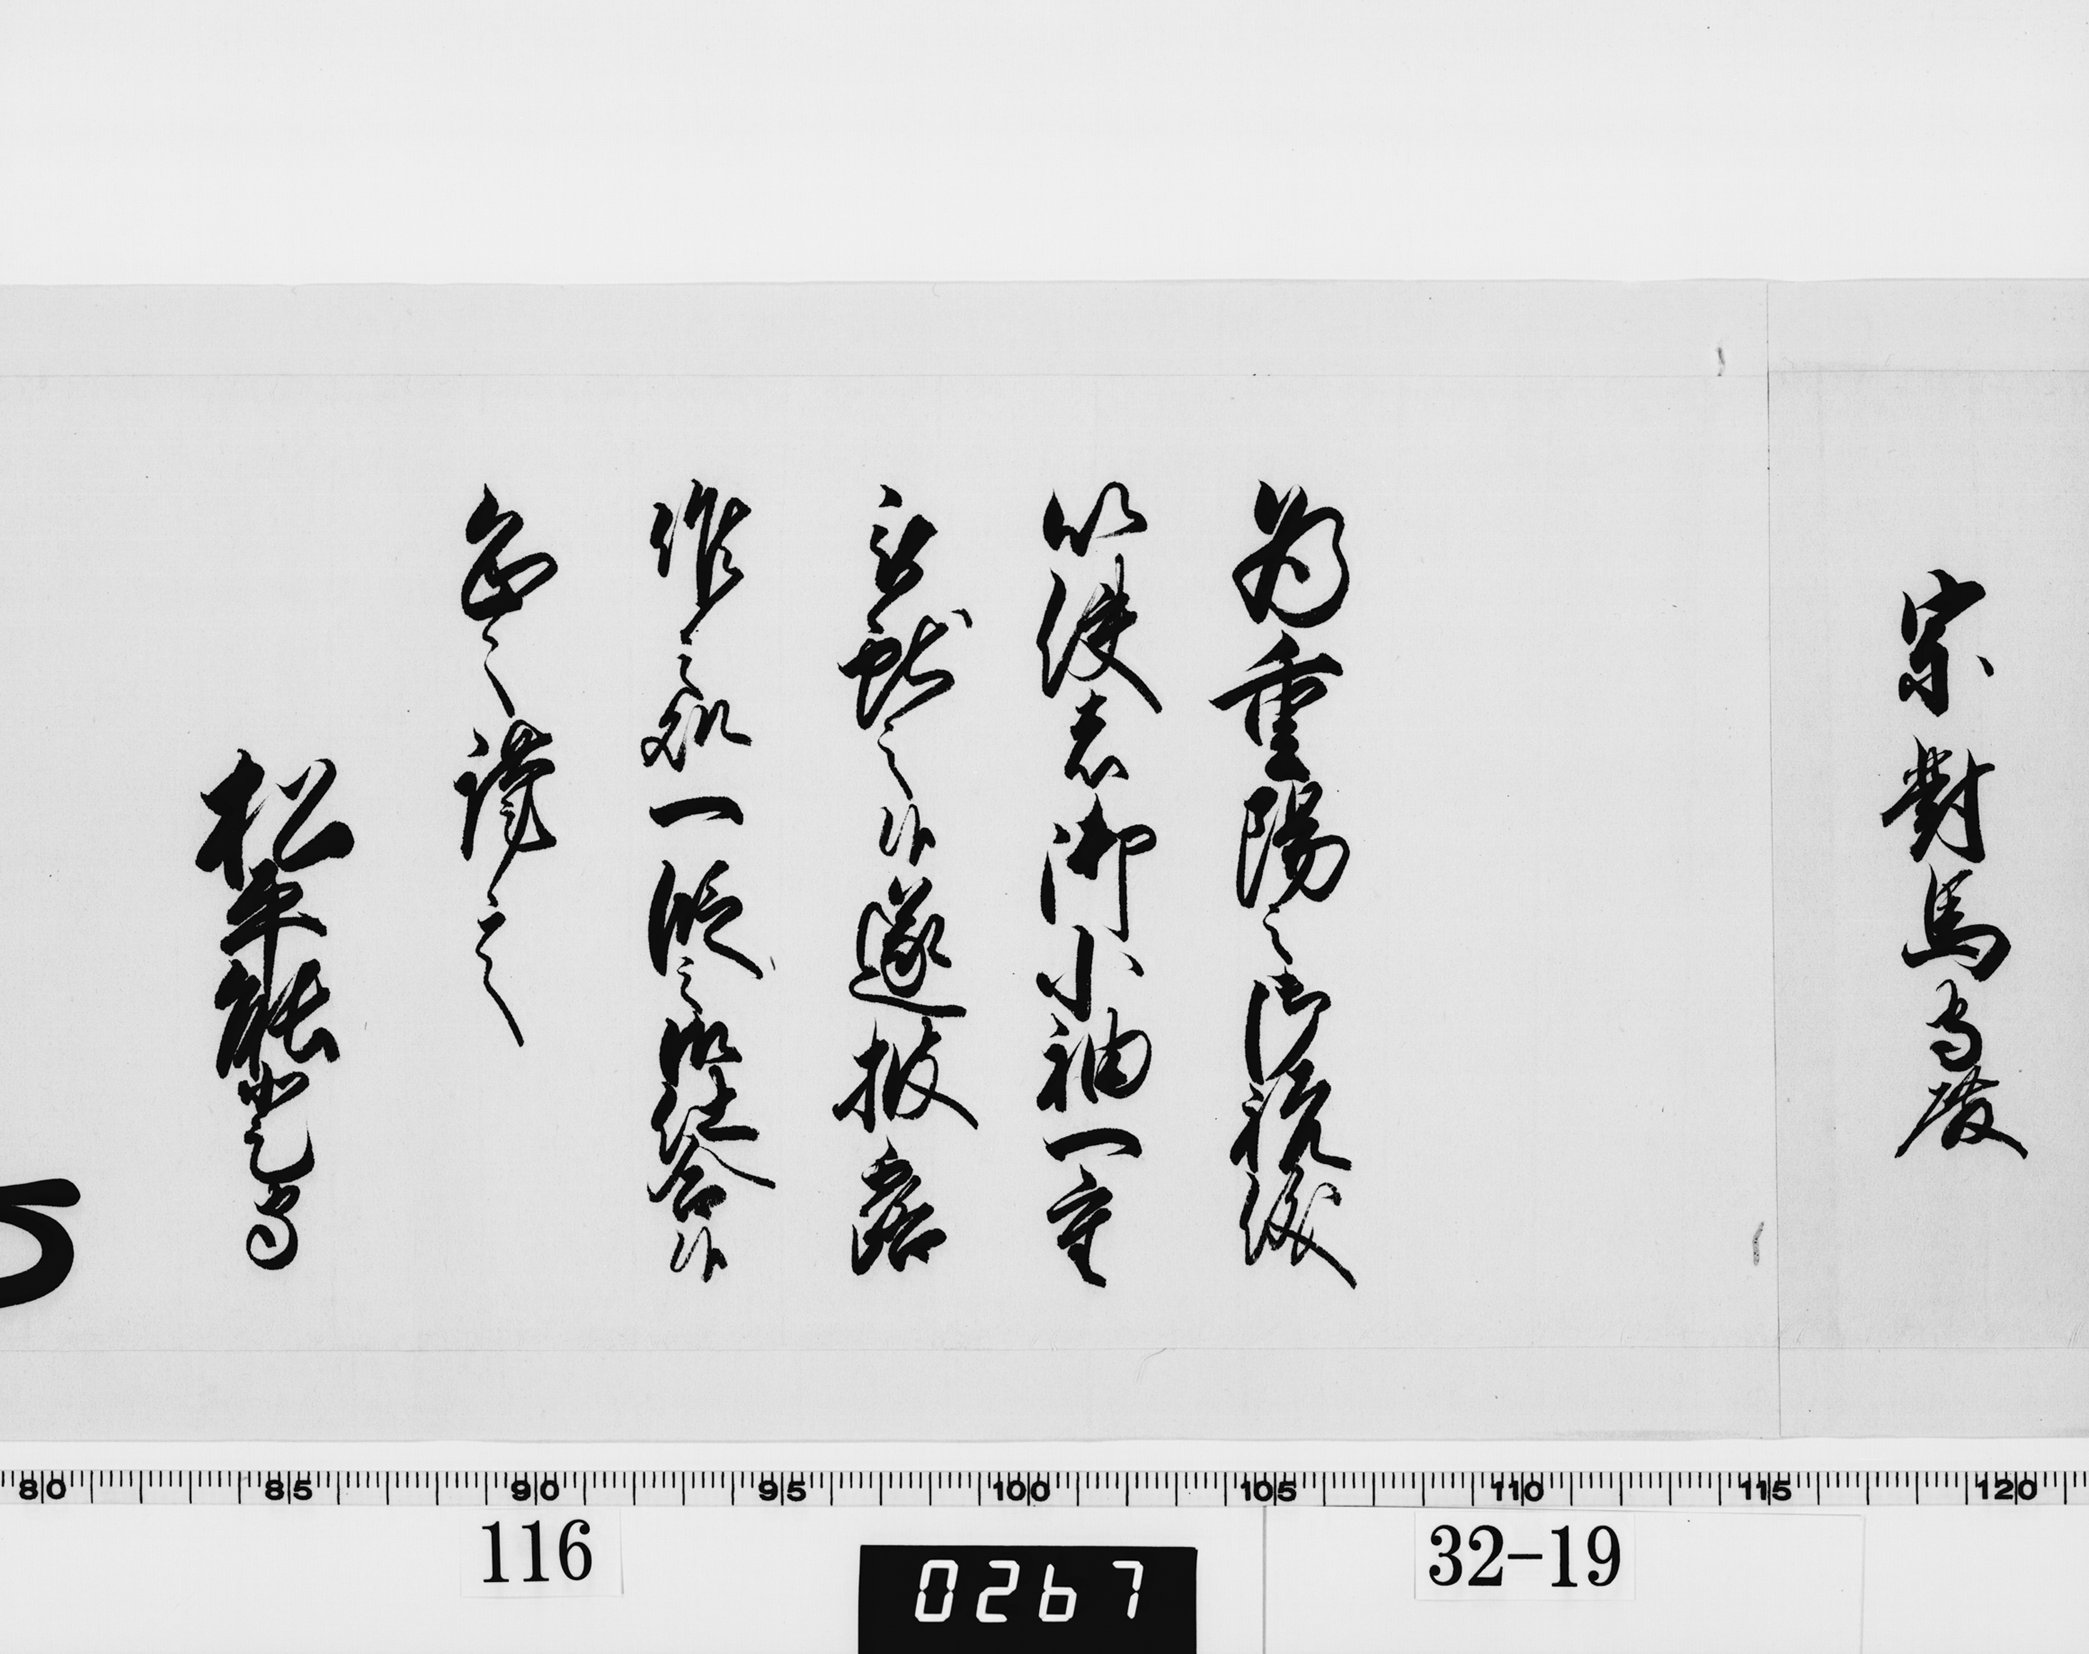 宗對馬守殿
為重陽之御祝儀
以使者御小袖一重
被献之候遂披露
候之処一段之御仕合候
恐々謹言
松平能登守
80 85 90 95 100 105 110 115 120
116
0267
32-19